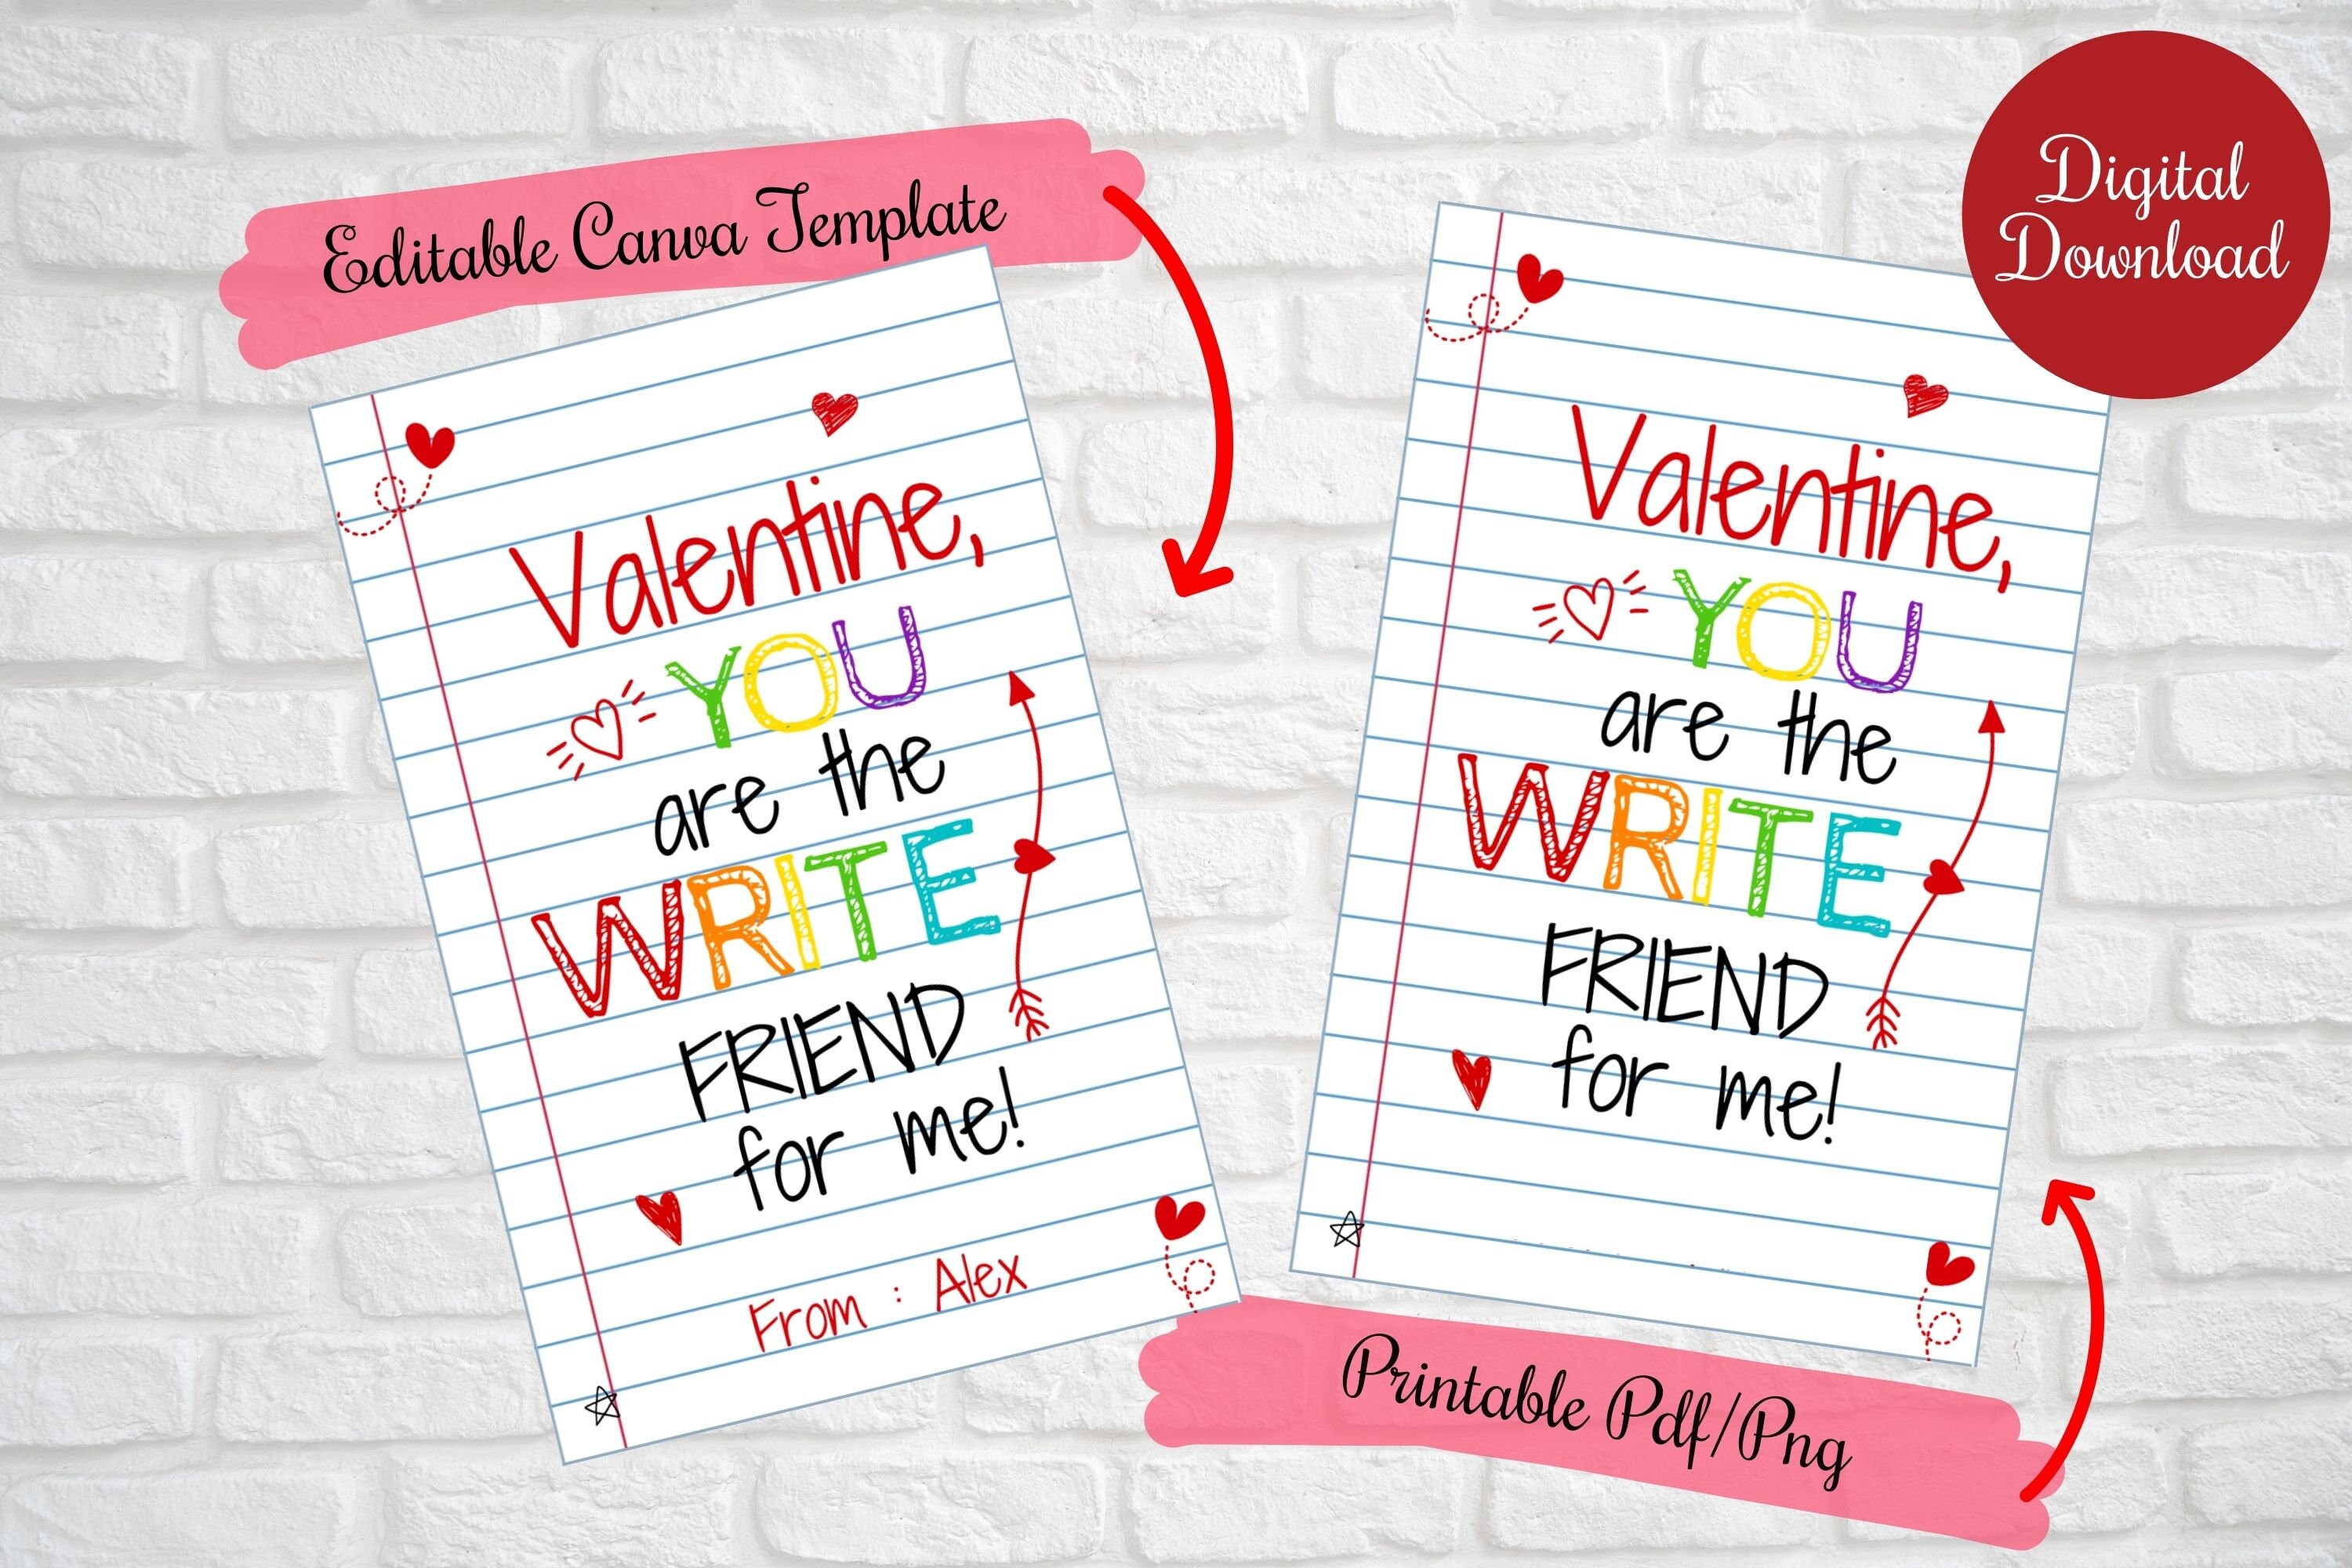 Editable Canva Template
Valentine,
YOU
are the
WRITE
FRIEND
for me!
From : Alex
Digital
Download
Valentine,
YOU
are the
WRITE
FRIEND
for me!
Printable Pdf/Png